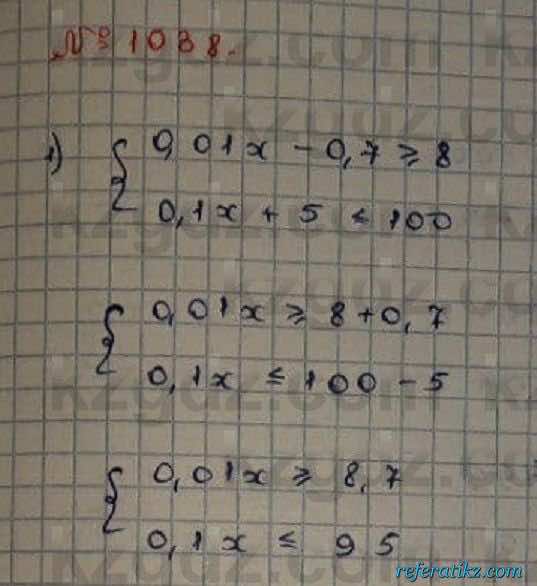 № 1038.
1) { 0,01x - 0,7 ≥ 8
0,1x + 5 ≤ 100
{ 0,01x ≥ 8 + 0,7
0,1x ≤ 100 - 5
{ 0,01x ≥ 8,7
0,1x ≤ 95
kzgdz.com
referatikz.com